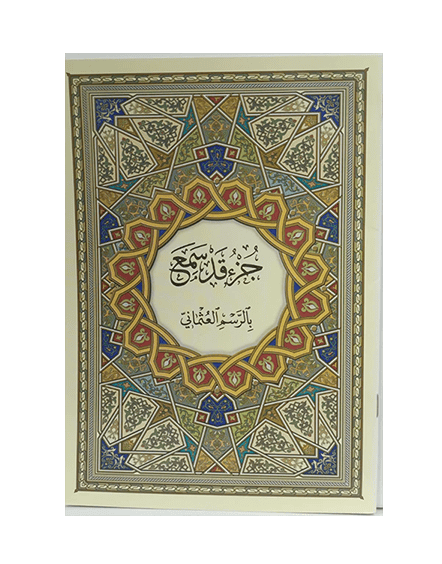 جُزْءُ قَدْ سَمِعَ
بِالرَّسْمِ العُثْمَانِي